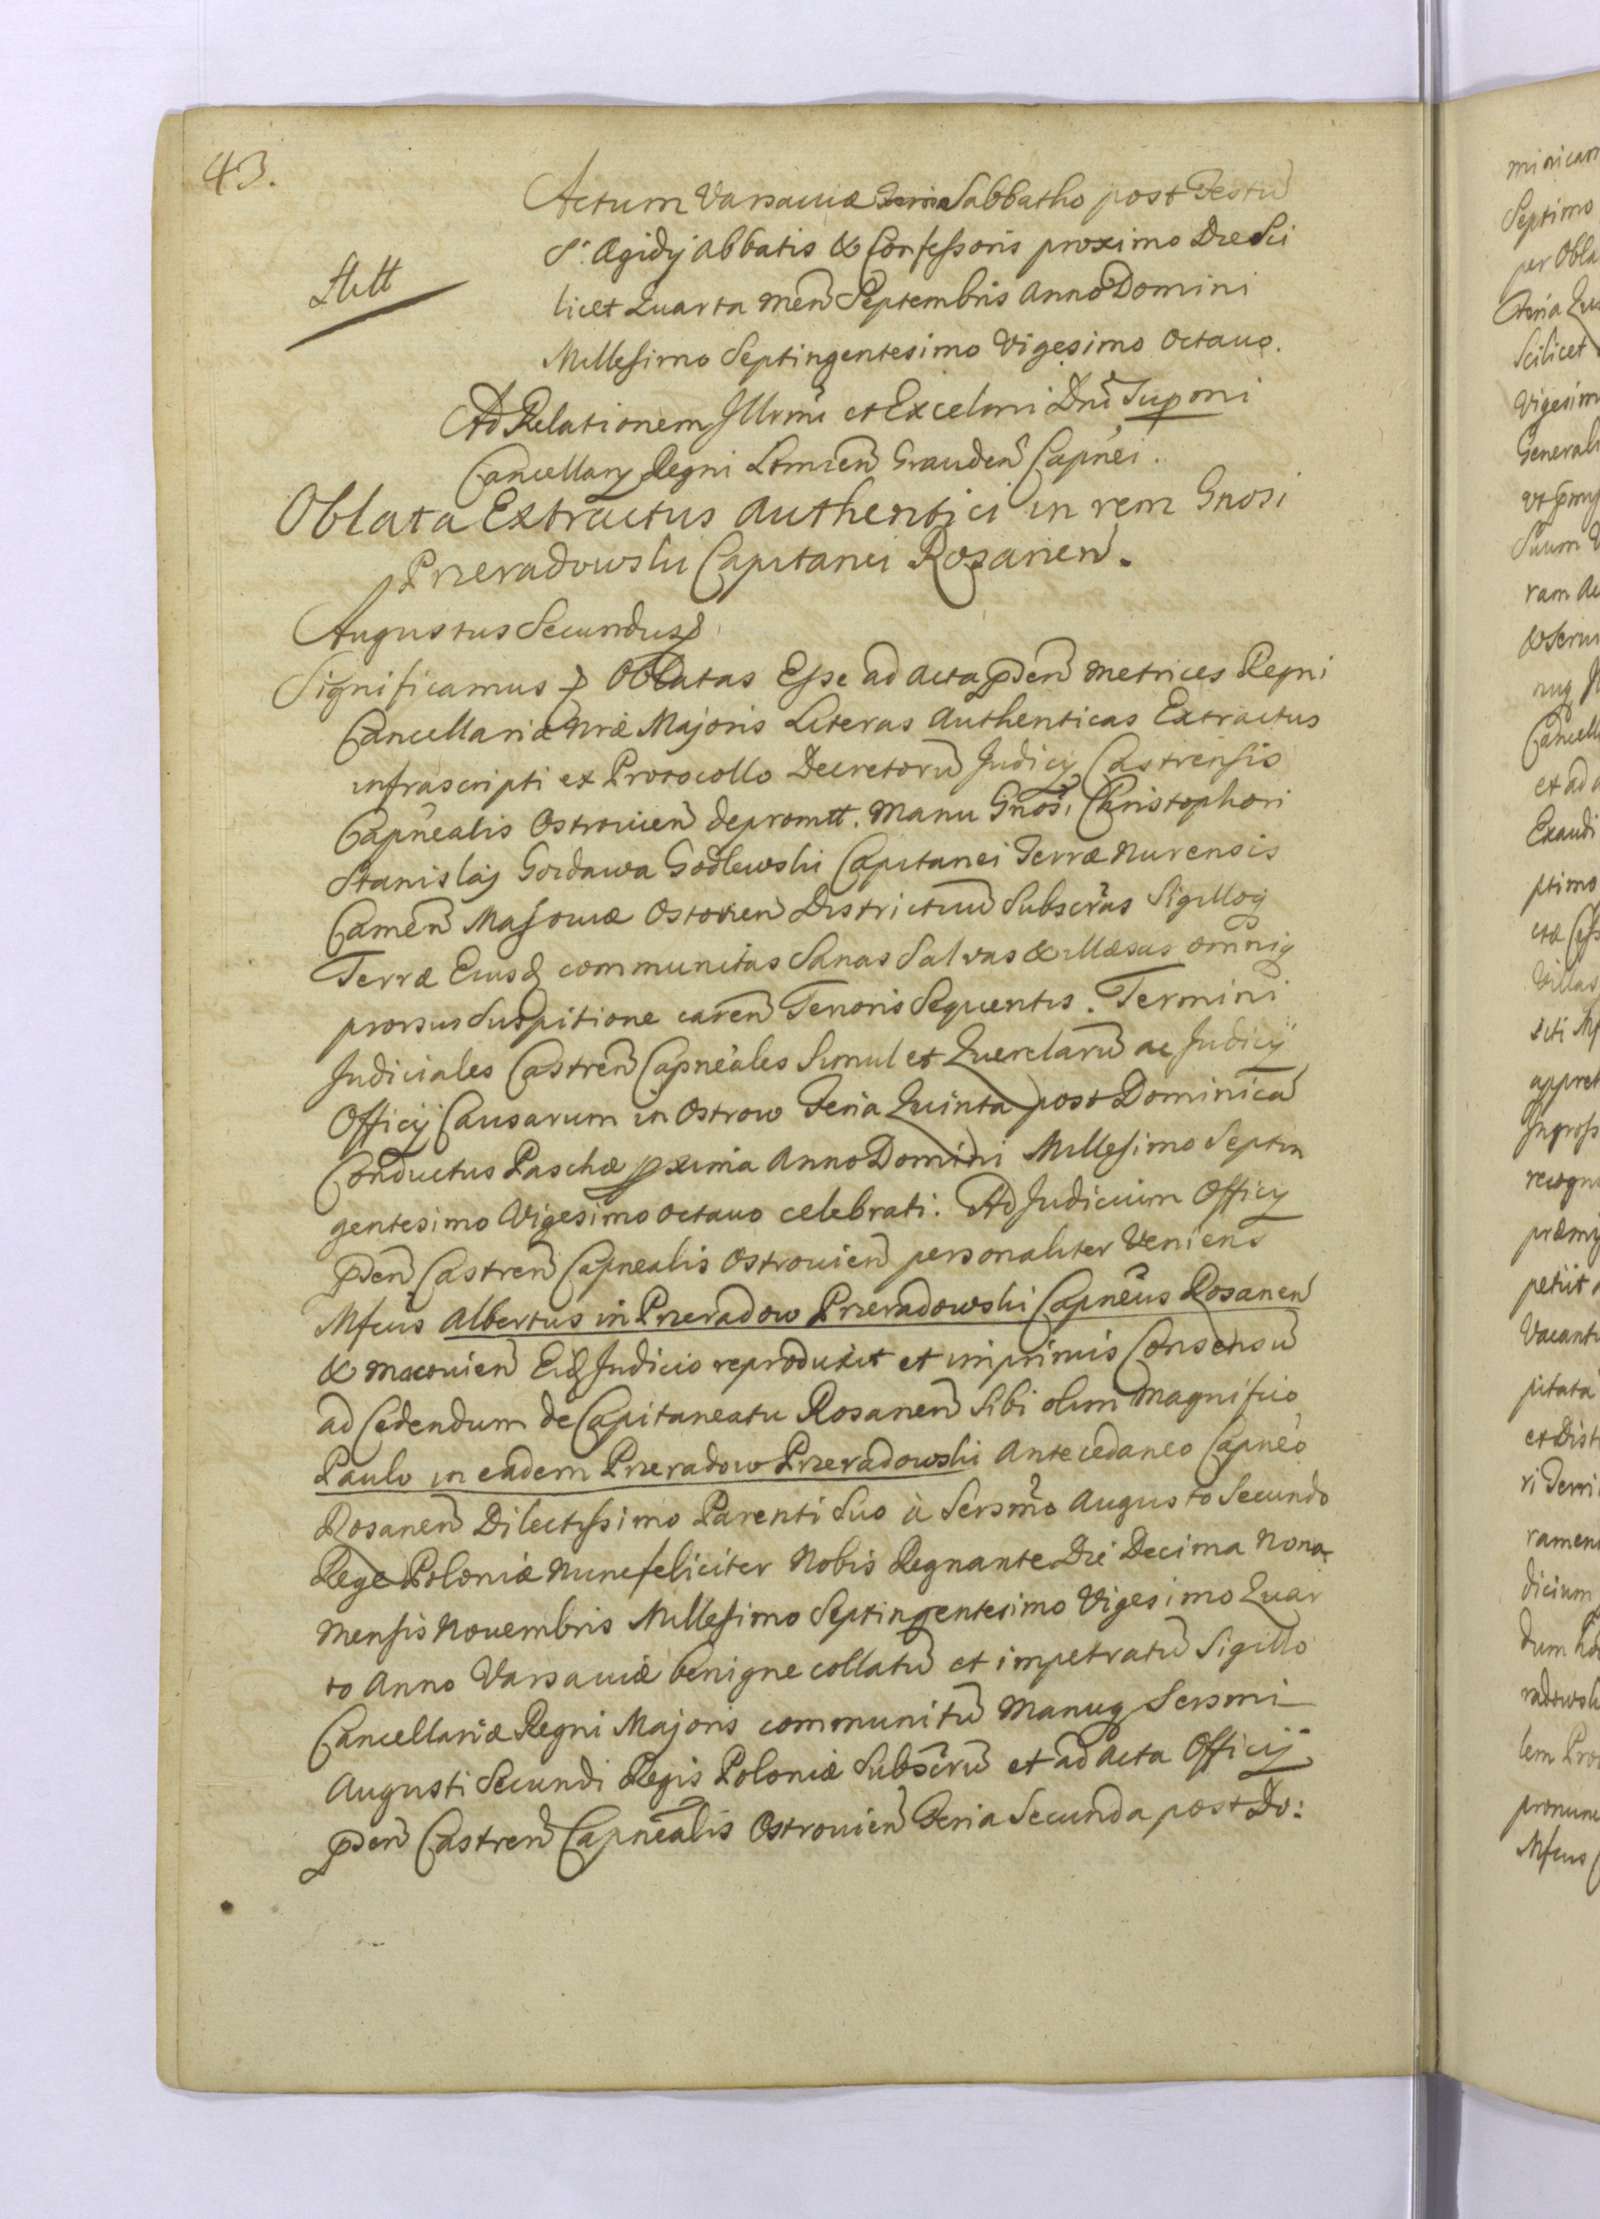 43.
Actum Varsaviæ Sabbatho post Festũ
S. Ægidij Abbatis & Confessoris proximo Die Sci
licet Quarta Men̄ Septembris Anno Domini
Millesimo Septingentesimo Vigesimo Octavo.
Ad Relationem Illrmi et Excelmi Dni
Cancellarij Regni Grauden̄ Capnei.
Oblata Extractus Authentici in rem Gnosi
Przeradowski Capitanei Rosanen̄.
Augustus Secundus
Significamus Oblatas Esse ad Acta pñden̄ Metrices Regni
Cancellariæ Nræ Majoris Literas Authenticas Extractus
infrascripti ex Protocollo Decretorũ Judicij Castrensis
Capnealis Ostrovien̄ depromtt. Manu Gnosi Christophori
Stanislaj Gozdawa Godlewski Capitanei Terræ Nurensis
Camen̄ Masoviæ Ostrovien̄ Districtuũ Subscras Sigilloq
Terræ Eiusd communitas Sanas Salvas & illæsas omniq
prorsus Suspitione caren̄ Tenoris Sequentis. Termini
Judiciales Castren̄ Capneales Simul et Querelarũ ac Judicij
Officij Causarum in Ostrow Feria Quinta post Dominicã
Conductus Paschæ pxima Anno Domini Millesimo Septin
gentesimo Vigesimo octavo celebrati. Ad Judicium Officij
pñden̄ Castren̄ Capnealis Ostrovien̄ personaliter Veniens
Mfcus Albertus in Przeradow Przeradowski Capneus Rosanen̄
& Macovien̄ Eid Judicio reproduxit et imprimis Consensũ
ad Cedendum de Capitaneatu Rosanen̄ Sibi olim Magnifico
Paulo in eadem Przeradow Przeradowski Antecedaneo Capneo
Rosanen̄ Dilectissimo Parenti Suo à Sersmo Augusto Secundo
Rege Poloniæ Nunc feliciter Nobis Regnante Die Decima Nona
Mensis Novembris Millesimo Septingentesimo Vigesimo Quar
to Anno Varsaviæ benigne collatũ et impetratũ Sigillo
Cancellariæ Regni Majoris communitũ Manuq Sersmi
Augusti Secundi Regis Poloniæ Subscrũ et ad Acta Officij
pñden̄ Castren̄ Capnealis Ostrovien̄ Feria Secunda post Do: